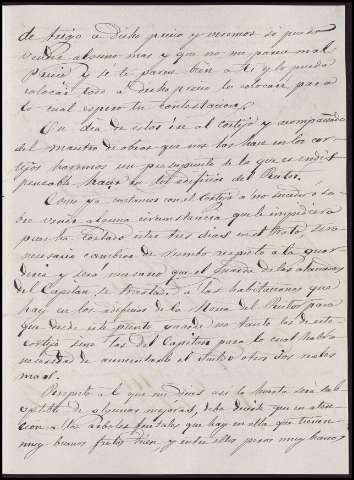 de trigo a dicho precio y veremos si puedo
vender alguno mas y que no me parece mal
precio y si te parece bien a ti y lo puedo
colocar todo a dicho precio lo colocaré para
lo cual espero tu contestacion,
Un dia de estos iré al cortijo y acompañado
del maestro de obras que nos las hace en los cor-
tijos haremos un presupuesto de lo que es indis-
pensable hacer en los edificios del
Como ya contamos con el cortijo a no suceder o so-
bre venir alguna circunstancia que lo impidiera
tres dias en el será
necesario cambiar de rumbo respecto a la guar-
deria y será necesario que el guarda de las
del Capitan se traslade a las habitaciones que
hay en los edificios de la del para
que desde este punto guarde no tanto las de este
cortijo sino las del Capitan para lo cual habrá
necesidad de aumentarle el otros dos reales
mas.
Respecto a lo que me dices así la huerta será sus-
ceptible de algunas mejoras, debo decirte que en aten-
cion a los árboles frutales que hay en ella que tienen
muy buenos frutos bien, y entre ellos peras muy buenas